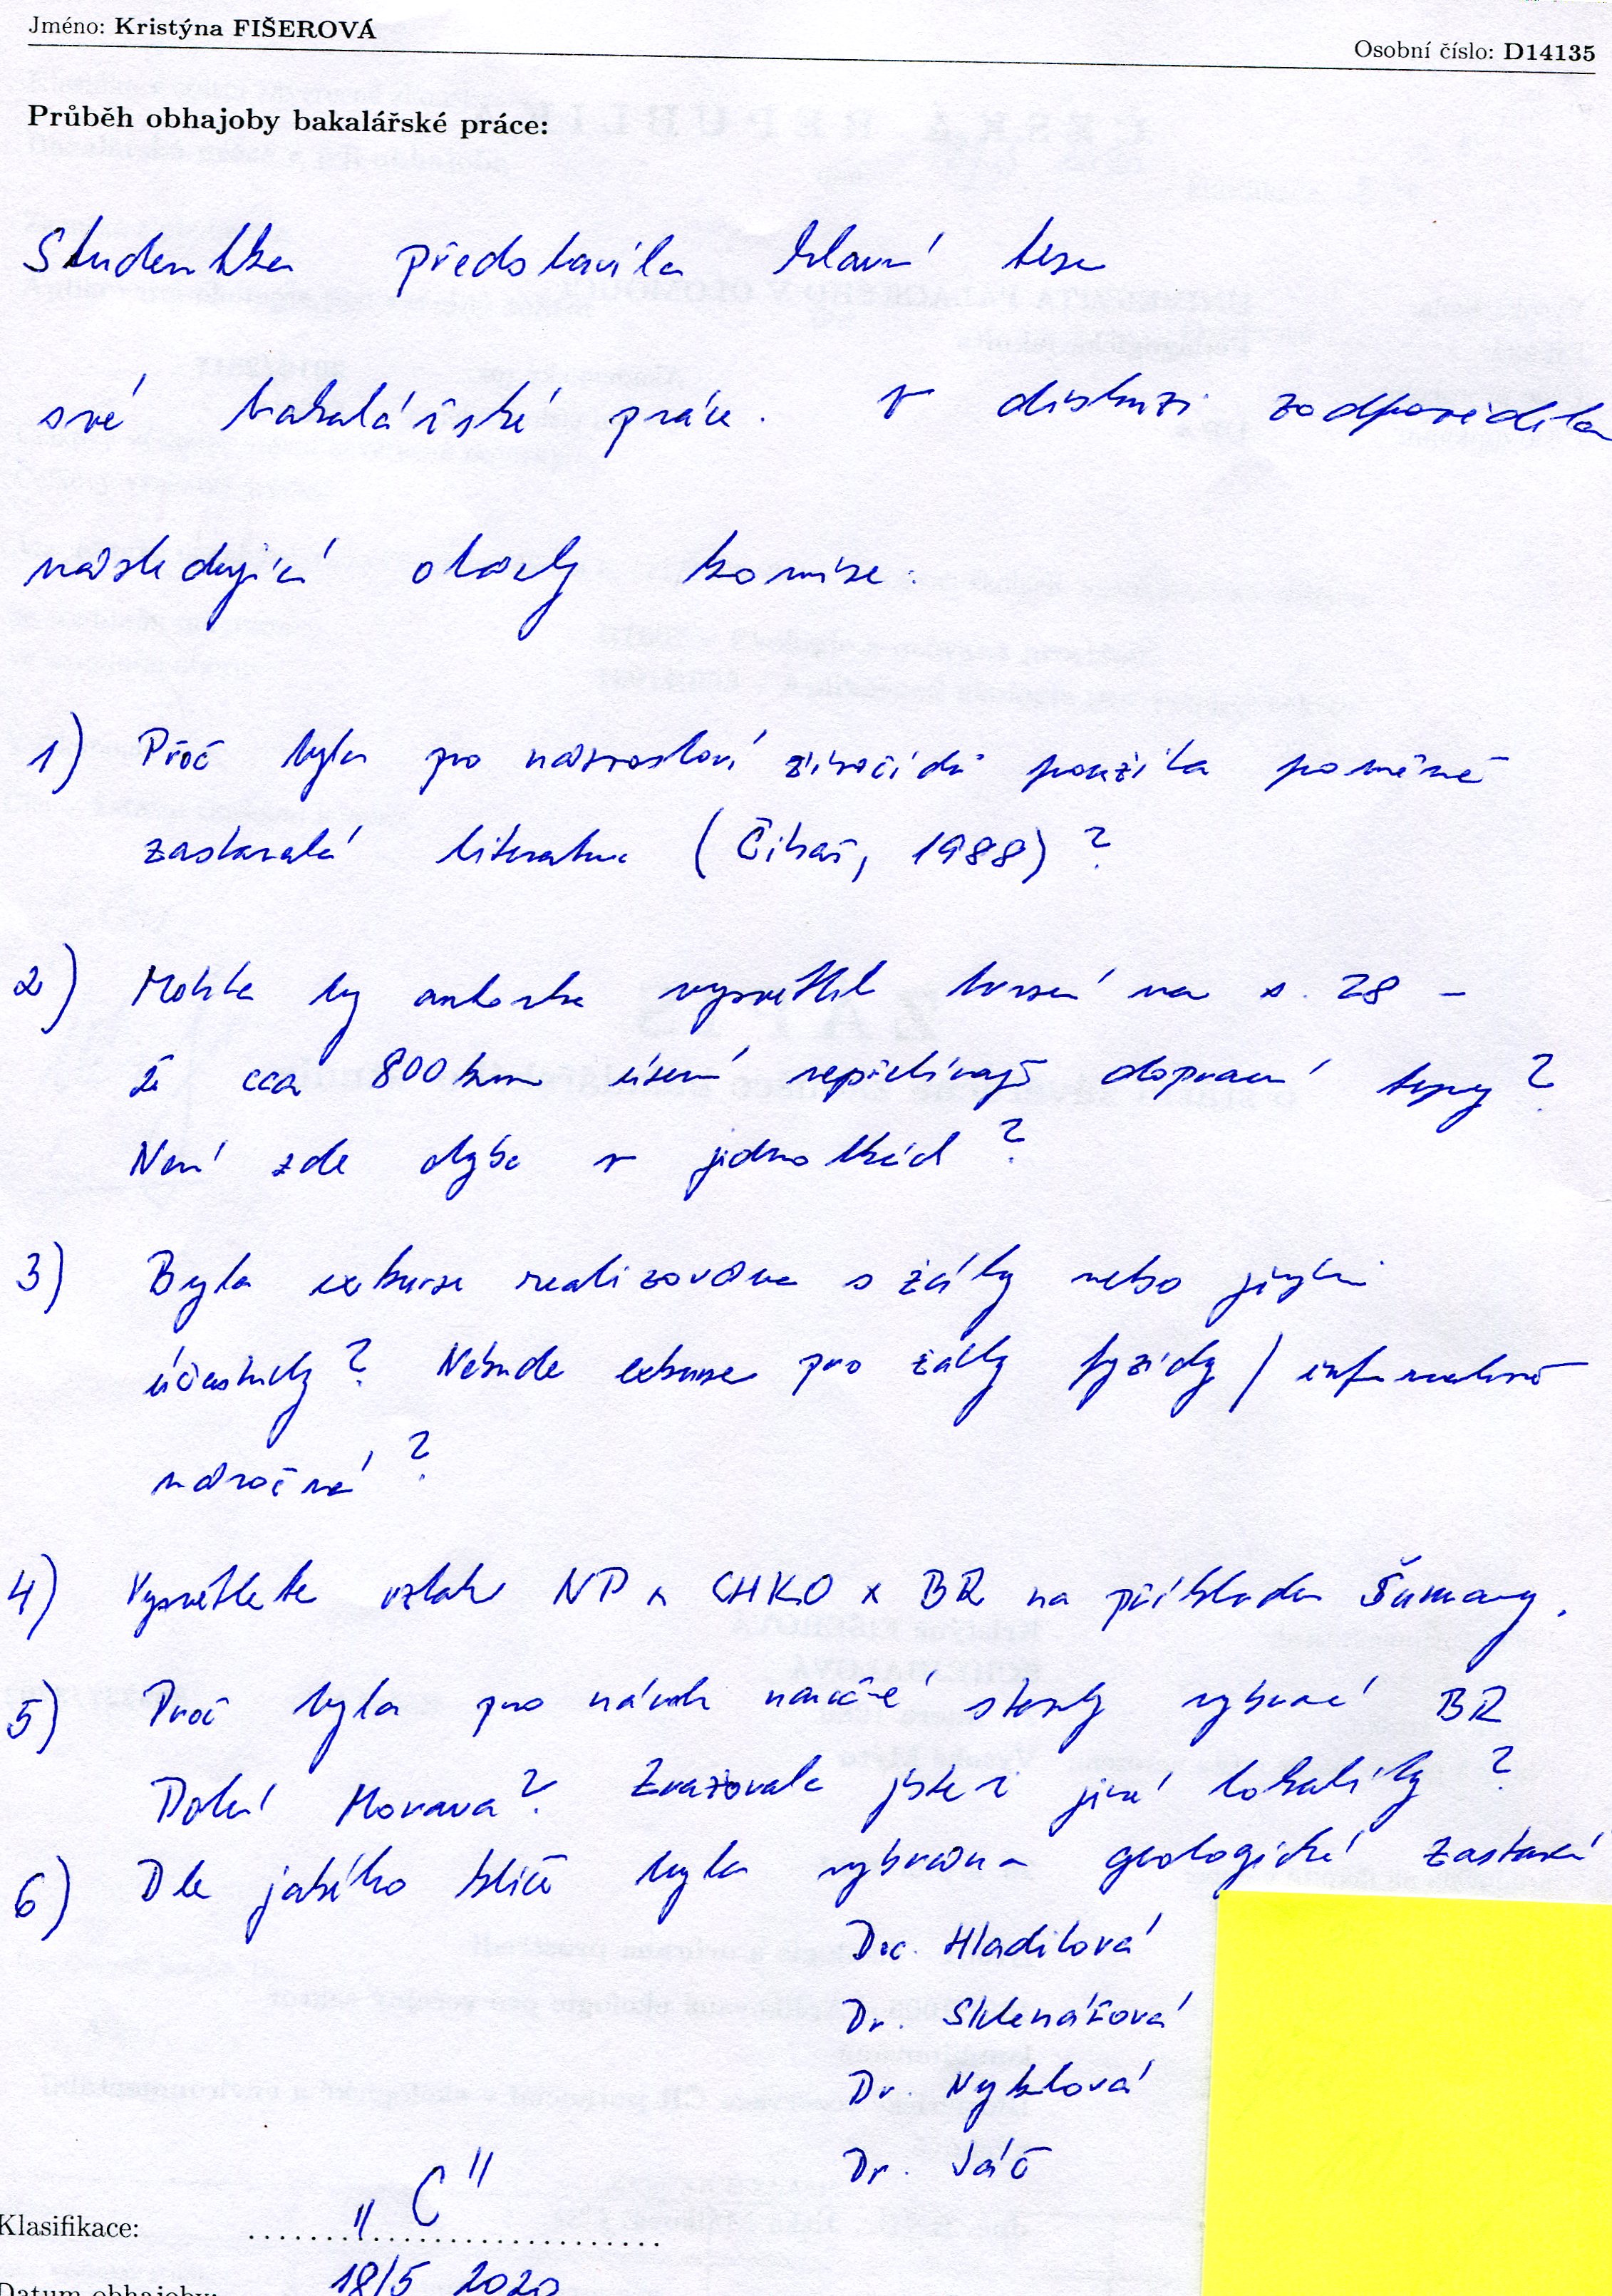 Jméno: Kristýna FIŠEROVÁ
Osobní číslo: D14135
Průběh obhajoby bakalářské práce:
Studentka představila hlavní teze
své bakalářské práce. V diskuzi zodpověděla
následující otázky komise:
1) Proč byla pro názvosloví živočichů použita poměrně
zastaralá literatura (Čihař, 1988)?
2) Mohla by autorka vysvětlit tvrzení na s. 28 -
že cca 800 km území nepřelínají dopravní
Není zde chyba v jednotkách?
3) Byla exkurze realizována s žáky nebo jinými
účastníky? Nebude exkurze pro žáky fyzicky / informačně
náročná?
4) Vysvětlete vztah NP x CHKO x BR na příkladu Šumavy.
5) Proč byla pro návrh naučné stezky vybrané BR
Dolní Morava? Zvažovala jste i jiné lokality?
6) Dle jakého klíče byla vybrána geologická zastavení
Doc. Hladilová
Dr. Sklenářová
Dr. Nyklová
Dr. Váč
Klasifikace: "C"
Datum obhajoby: 18/5 2020